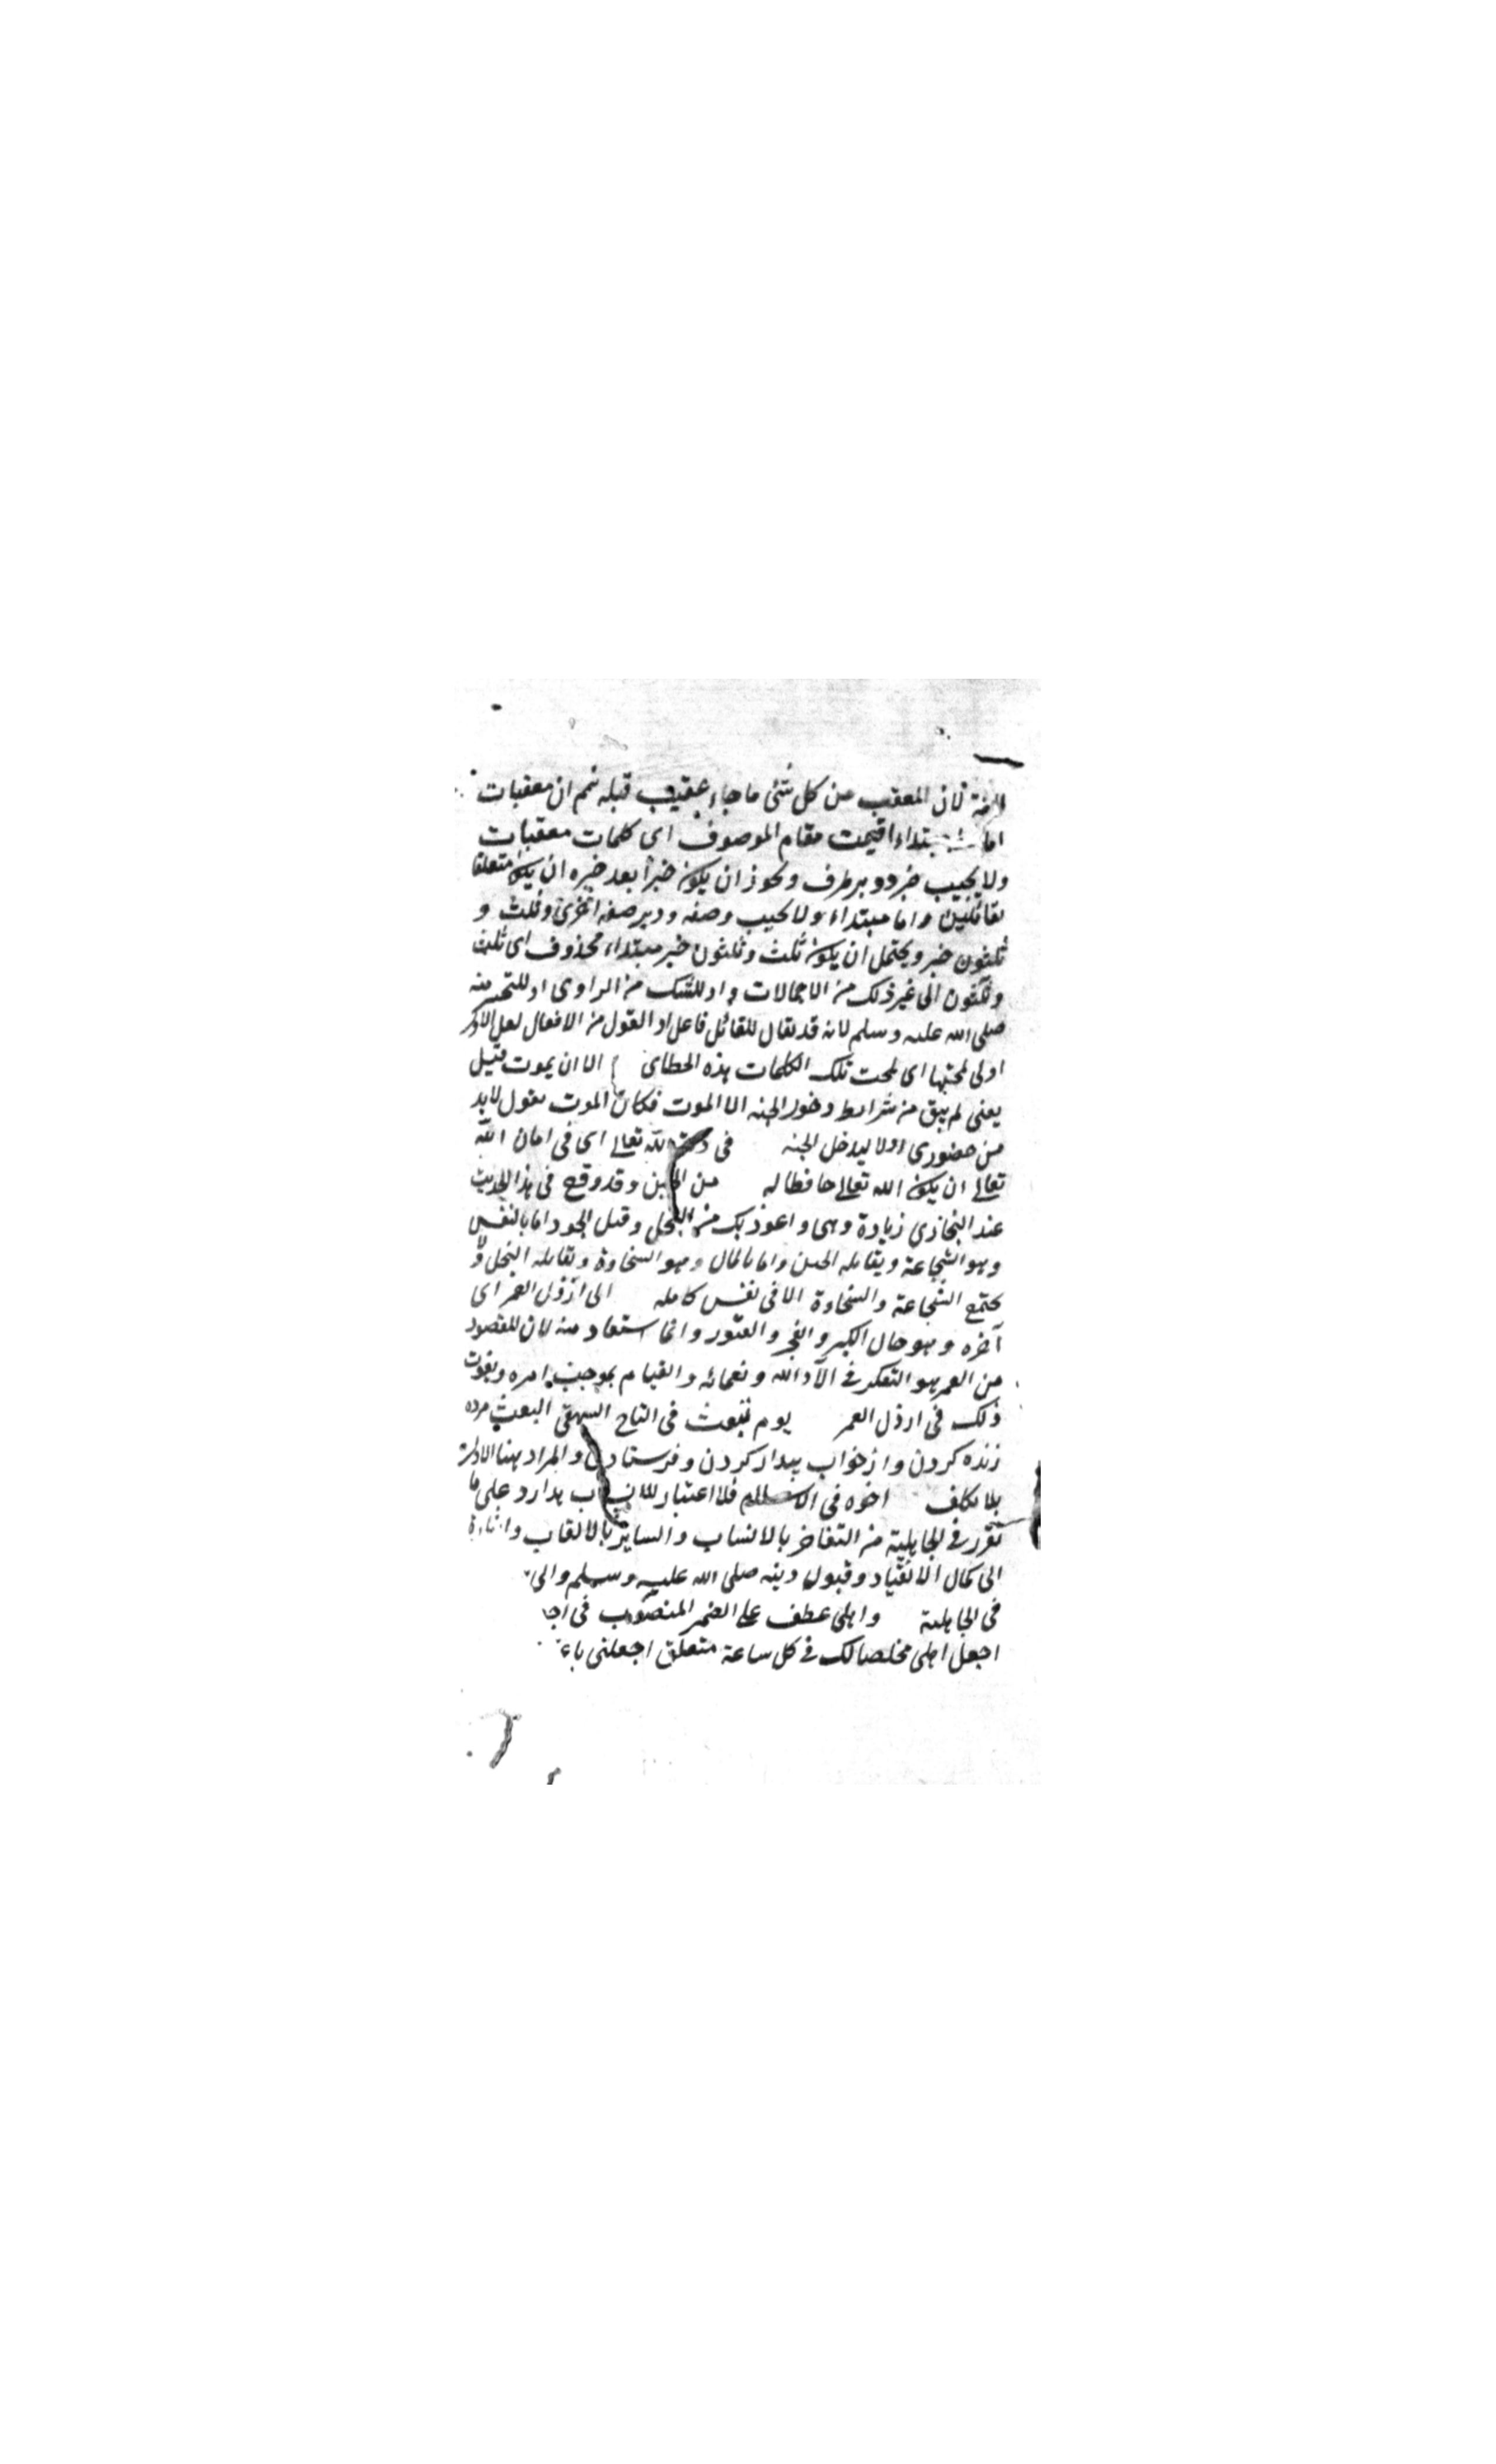 لان المعقب من كل شئ ما جاء عقيب قبله ثم ان معقبات
اما مبتداء اقيمت مقام الموصوف اى كلمات معقبات
ولا يخيب خبر ودبر ظرف ويجوز ان يكون خبرا بعد خبره ان يكون متعلقا
بقائلهن واما مبتداء ولا يخيب وصفه ودبر صفه اخرى وثلث و
ثلثون خبر ويحتمل ان يكون ثلث وثلثون خبر مبتداء محذوف اى ثلث
وثلثون الى غير ذلك من الاحمالات واو للشك من الراوى او للتخير منه
صلى الله عليه وسلم لانه قد يقال للقائل فاعل اذ القول من الافعال لعل الاول
اولى لمحتها اى لمحت تلك الكلمات هذه الخطاى الا ان يموت قيل
يعنى لم يبق من شرايط دخول الجنه الا الموت فكان الموت يقول لابد
من حضورى اولا ليدخل الجنه فى ذمة الله تعالى اى فى امان الله
تعالى ان يكون الله تعالى حافظا له من الجبن وقد وقع فى هذا الحديث
عند البخارى زيادة وهى واعوذ بك من البخل وقيل الجود اما بالنفس
وهو الشجاعة ويقابله الجبن واما بالمال وهو السخاوة ويقابله البخل ولا
يجتمع الشجاعة والسخاوة الا فى نفس كامله الى ارذل العمر اى
آخره وهو حال الكبر والعجز والفتور وانما استعاد منه لان المقصود
من العمر هو التفكر فى الآء الله ونعمائه والقيام بموجب امره ويفوت
ذلك فى ارذل العمر يوم تبعث فى التاج البيهقى البعث مرده
زنده كردن واز خواب بيدار كردن وفرستادن والمراد ههنا الاول
بلا تكلف اخوه فى الاسلام فلا اعتبار للانساب هذا رد على ما
تقرر فى الجاهلية من التفاخر بالانساب والتنابز بالالقاب واشارة
الى كمال الانقياد وقبول دينه صلى الله عليه وسلم والى
فى الجاهلية واهلى عطف على الضمير المنصوب فى
اجعل اهلى مخلصا لك فى كل ساعة متعلق اجعلنى